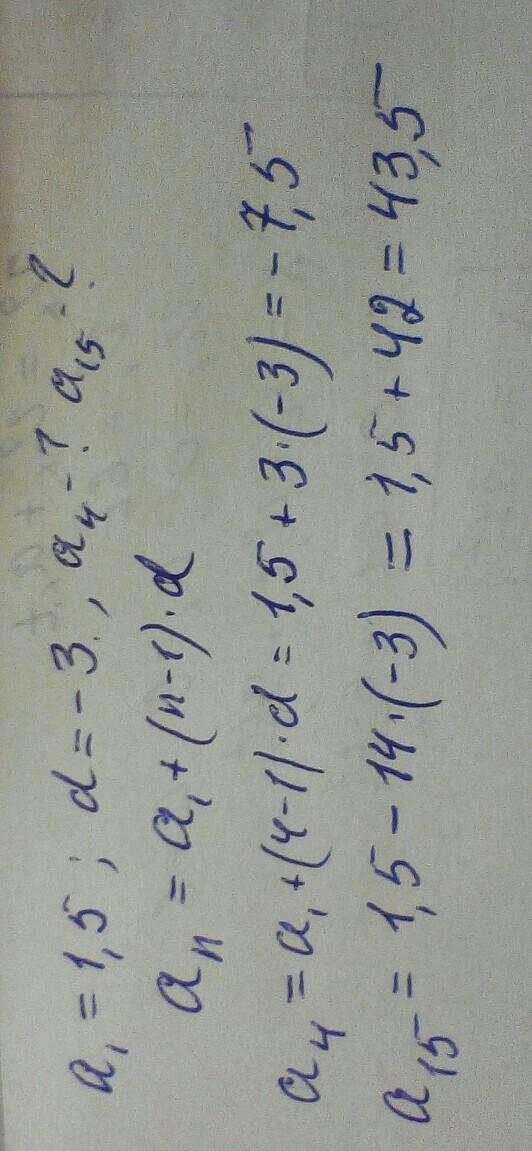 a₁ = 1,5 ; d = -3 , a₄ - ? a₁₅ - ?
aₙ = a₁ + (n-1) · d
a₄ = a₁ + (4-1) · d = 1,5 + 3 · (-3) = -7,5
a₁₅ = 1,5 - 14 · (-3) = 1,5 + 42 = 43,5